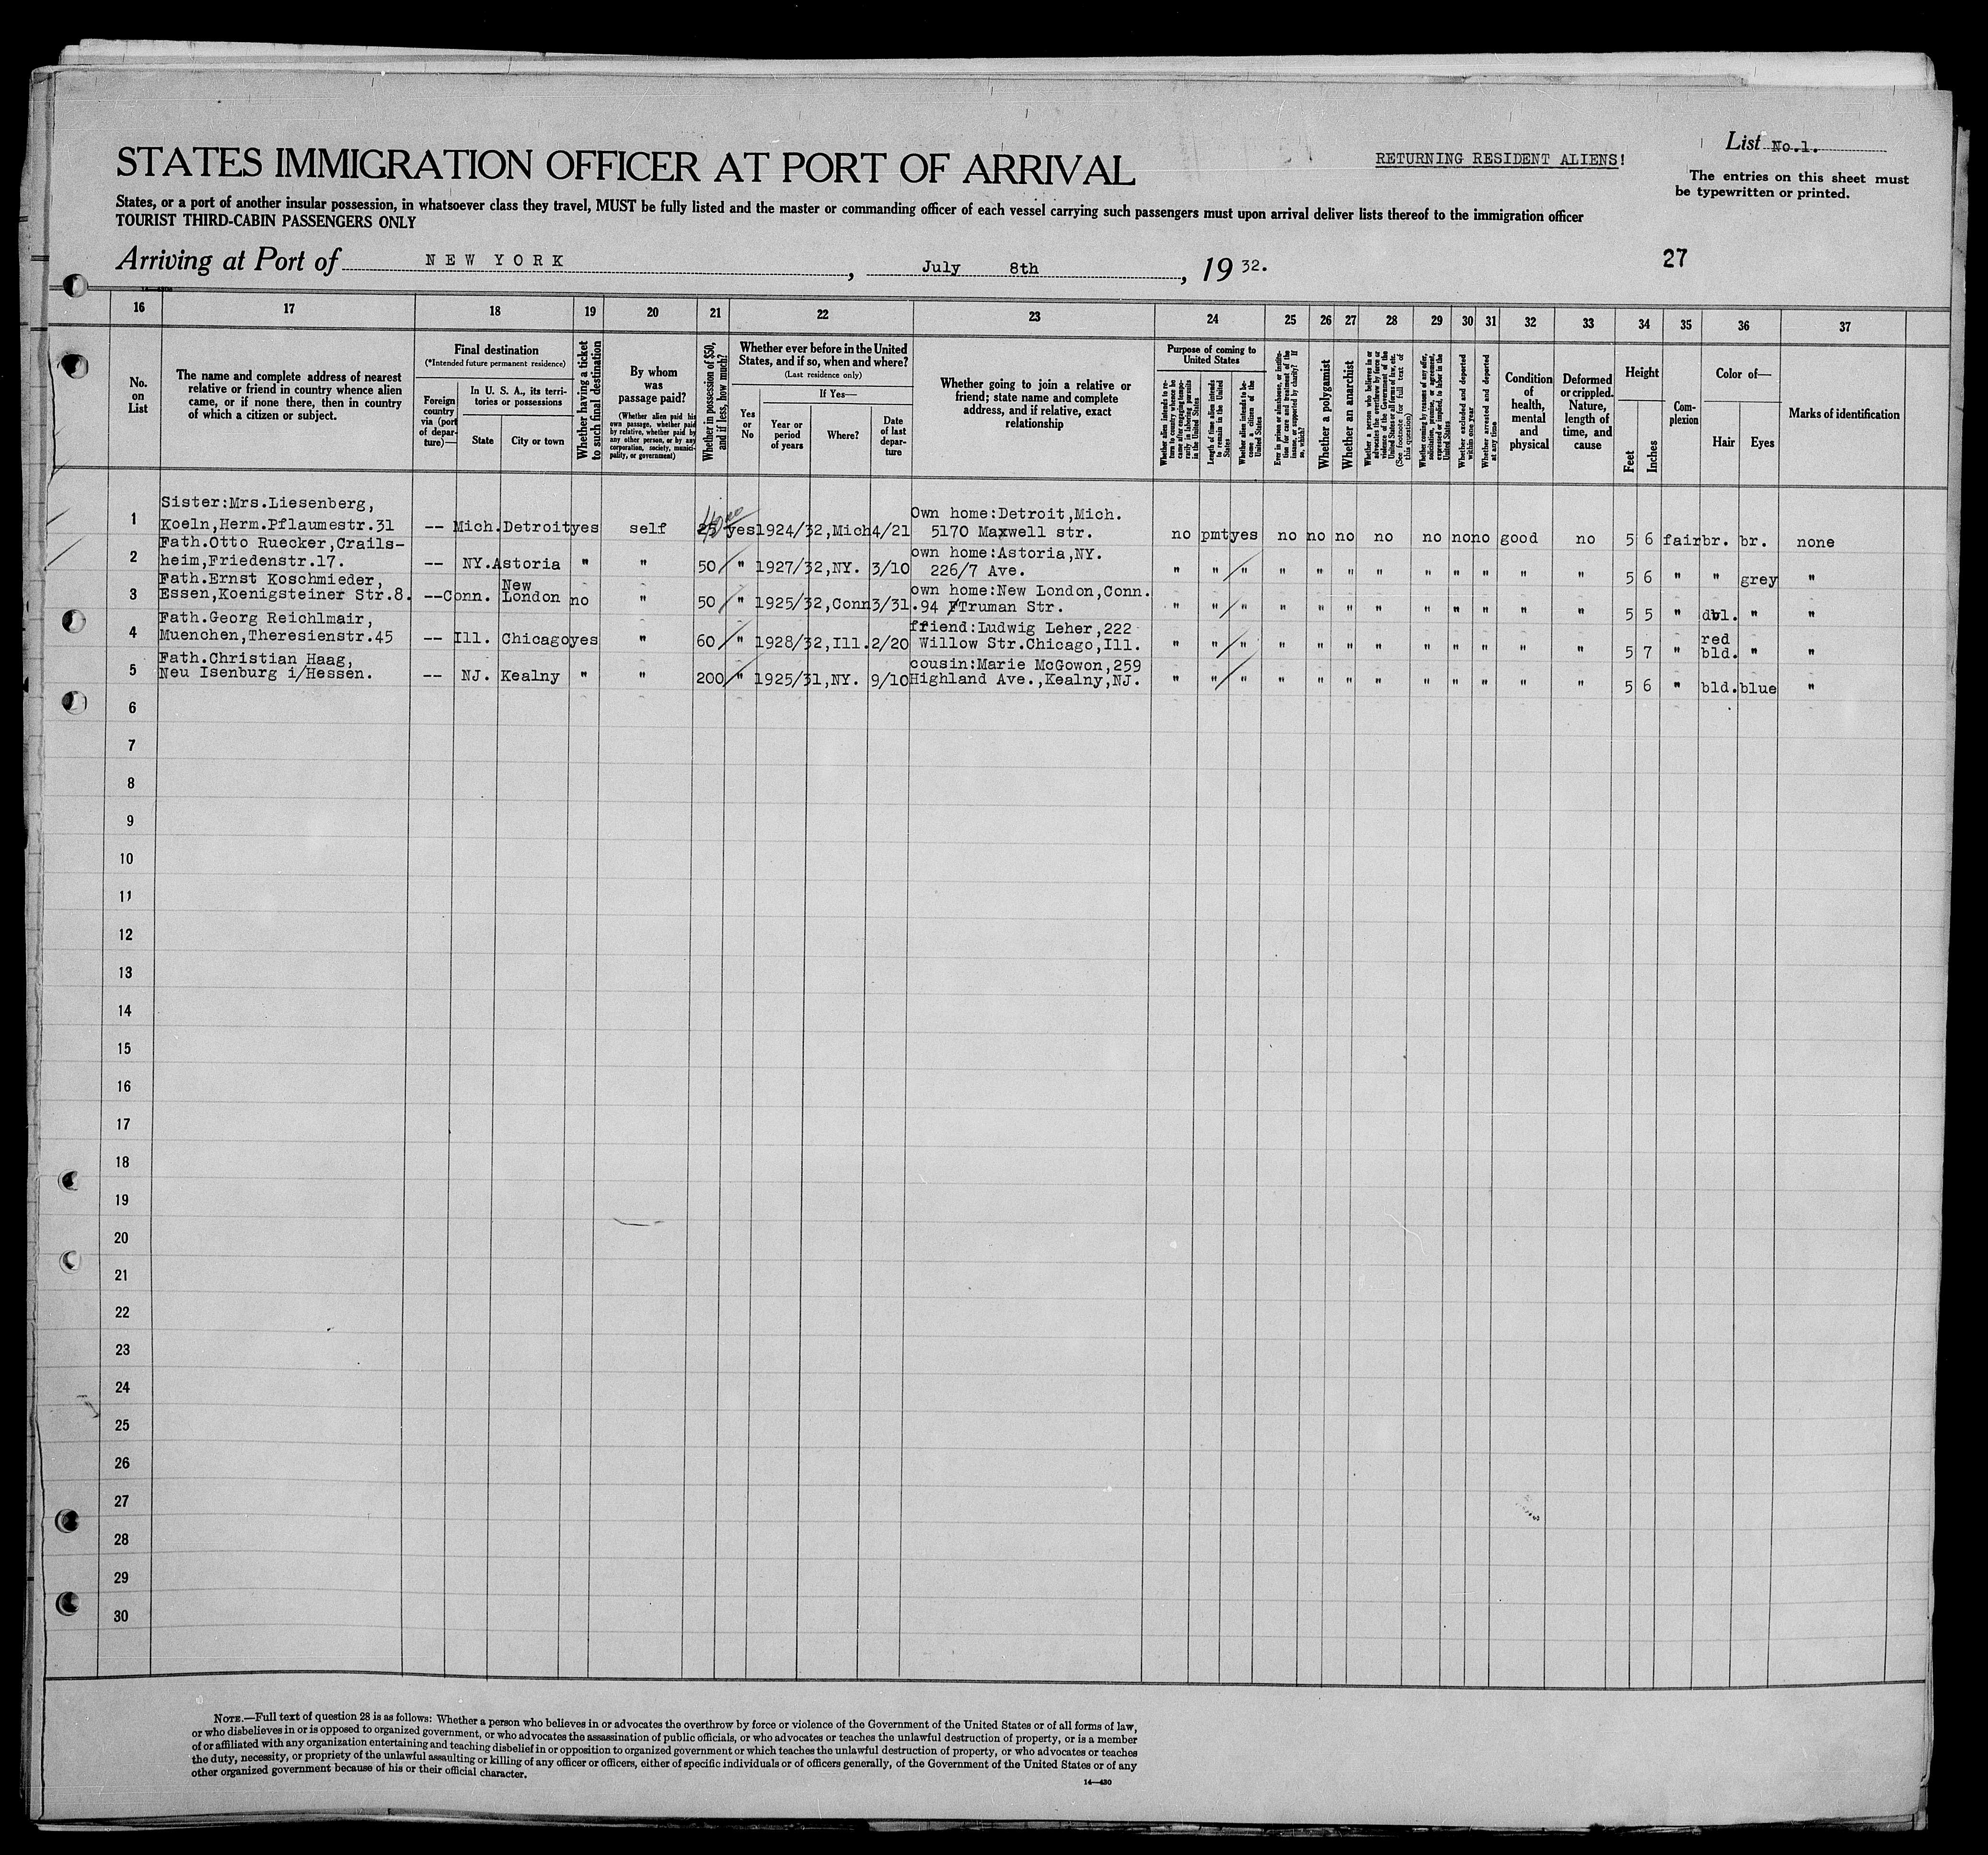 List No.1.
RETURNING RESIDENT ALIENS!
STATES IMMIGRATION OFFICER AT PORT OF ARRIVAL
The entries on this sheet must
be typewritten or printed.
States, or a port of another insular possession, in whatsoever class they travel, MUST be fully listed and the master or commanding officer of each vessel carrying such passengers must upon arrival deliver lists thereof to the immigration officer
TOURIST THIRD-CABIN PASSENGERS ONLY
Arriving at Port of NEW YORK, July 8th, 1932.
27
16 17 18 19 20 21 22 23 24 25 26 27 28 29 30 31 32 33 34 35 36 37
No. on List
The name and complete address of nearest
relative or friend in country whence alien
came, or if none there, then in country
of which a citizen or subject.
Final destination
(*Intended future permanent residence)
Foreign
country
via (port
of depar-
ture)—
In U. S. A., its terri-
tories or possessions
State
City or town
Whether having a ticket
to such final destination
By whom
was
passage paid?
(Whether alien paid his
own passage, whether paid
by relative, whether paid by
any other person, or by any
corporation, society, munici-
pality, or government)
Whether in possession of $50,
and if less, how much?
Whether ever before in the United
States, and if so, when and where?
(Last residence only)
Yes
or
No
If Yes—
Year or
period
of years
Where?
Date
of last
depar-
ture
Whether going to join a relative or
friend; state name and complete
address, and if relative, exact
relationship
Purpose of coming to
United States
Whether alien intends to re-
turn to country whence he
came after engaging tempo-
rarily in laboring pursuits
in the United States
Length of time alien intends
to remain in the United
States
Whether alien intends to be-
come a citizen of the
United States
Ever in prison or almshouse, or institu-
tion for care and treatment of the
insane, or supported by charity? If
so, which?
Whether a polygamist
Whether an anarchist
Whether a person who believes in or
advocates the overthrow by force or
violence of the Government of the
United States or all forms of law, etc.
(See footnote for full text of
this question)
Whether coming by reasons of any offer,
solicitation, promise, or agreement,
expressed or implied, to labor in the
United States
Whether excluded and deported
within one year
Whether arrested and deported
at any time
Condition
of
health,
mental
and
physical
Deformed
or crippled.
Nature,
length of
time, and
cause
Height
Feet
Inches
Com-
plexion
Color of—
Hair
Eyes
Marks of identification
Sister:Mrs.Liesenberg,
1 Koeln,Herm.Pflaumestr.31 -- Mich. Detroit yes self 25 yes 1924/32, Mich 4/21 Own home:Detroit,Mich.
5170 Maxwell str. no pmt yes no no no no no no no good no 5 6 fair br. br. none
Fath.Otto Ruecker,Crails-
2 heim,Friedenstr.17. -- NY. Astoria " " 50 " 1927/32, NY. 3/10 own home:Astoria,NY.
226/7 Ave. " " " " " " " " " " " " 5 6 " " grey "
Fath.Ernst Koschmieder,
3 Essen,Koenigsteiner Str.8. -- Conn. New London no " 50 " 1925/32, Conn 3/31 own home:New London,Conn.
.94 Truman Str. " " " " " " " " " " " " 5 5 " dbl. " "
Fath.Georg Reichlmair,
4 Muenchen,Theresienstr.45 -- Ill. Chicago yes " 60 " 1928/32, Ill. 2/20 ffriend:Ludwig Leher,222
Willow Str.Chicago,Ill. " " " " " " " " " " " " 5 7 " red bld. " "
Fath.Christian Haag,
5 Neu Isenburg i/Hessen. -- NJ. Kealny " " 200 " 1925/31, NY. 9/10 cousin:Marie McGowon,259
Highland Ave.,Kealny,NJ. " " " " " " " " " " " " 5 6 " bld. blue "
6
7
8
9
10
11
12
13
14
15
16
17
18
19
20
21
22
23
24
25
26
27
28
29
30
NOTE.—Full text of question 28 is as follows: Whether a person who believes in or advocates the overthrow by force or violence of the Government of the United States or of all forms of law,
or who disbelieves in or is opposed to organized government, or who advocates the assassination of public officials, or who advocates or teaches the unlawful destruction of property, or is a member
of or affiliated with any organization entertaining and teaching disbelief in or opposition to organized government or which teaches the unlawful destruction of property, or who advocates or teaches
the duty, necessity, or propriety of the unlawful assaulting or killing of any officer or officers, either of specific individuals or of officers generally, of the Government of the United States or of any
other organized government because of his or their official character.
14—430